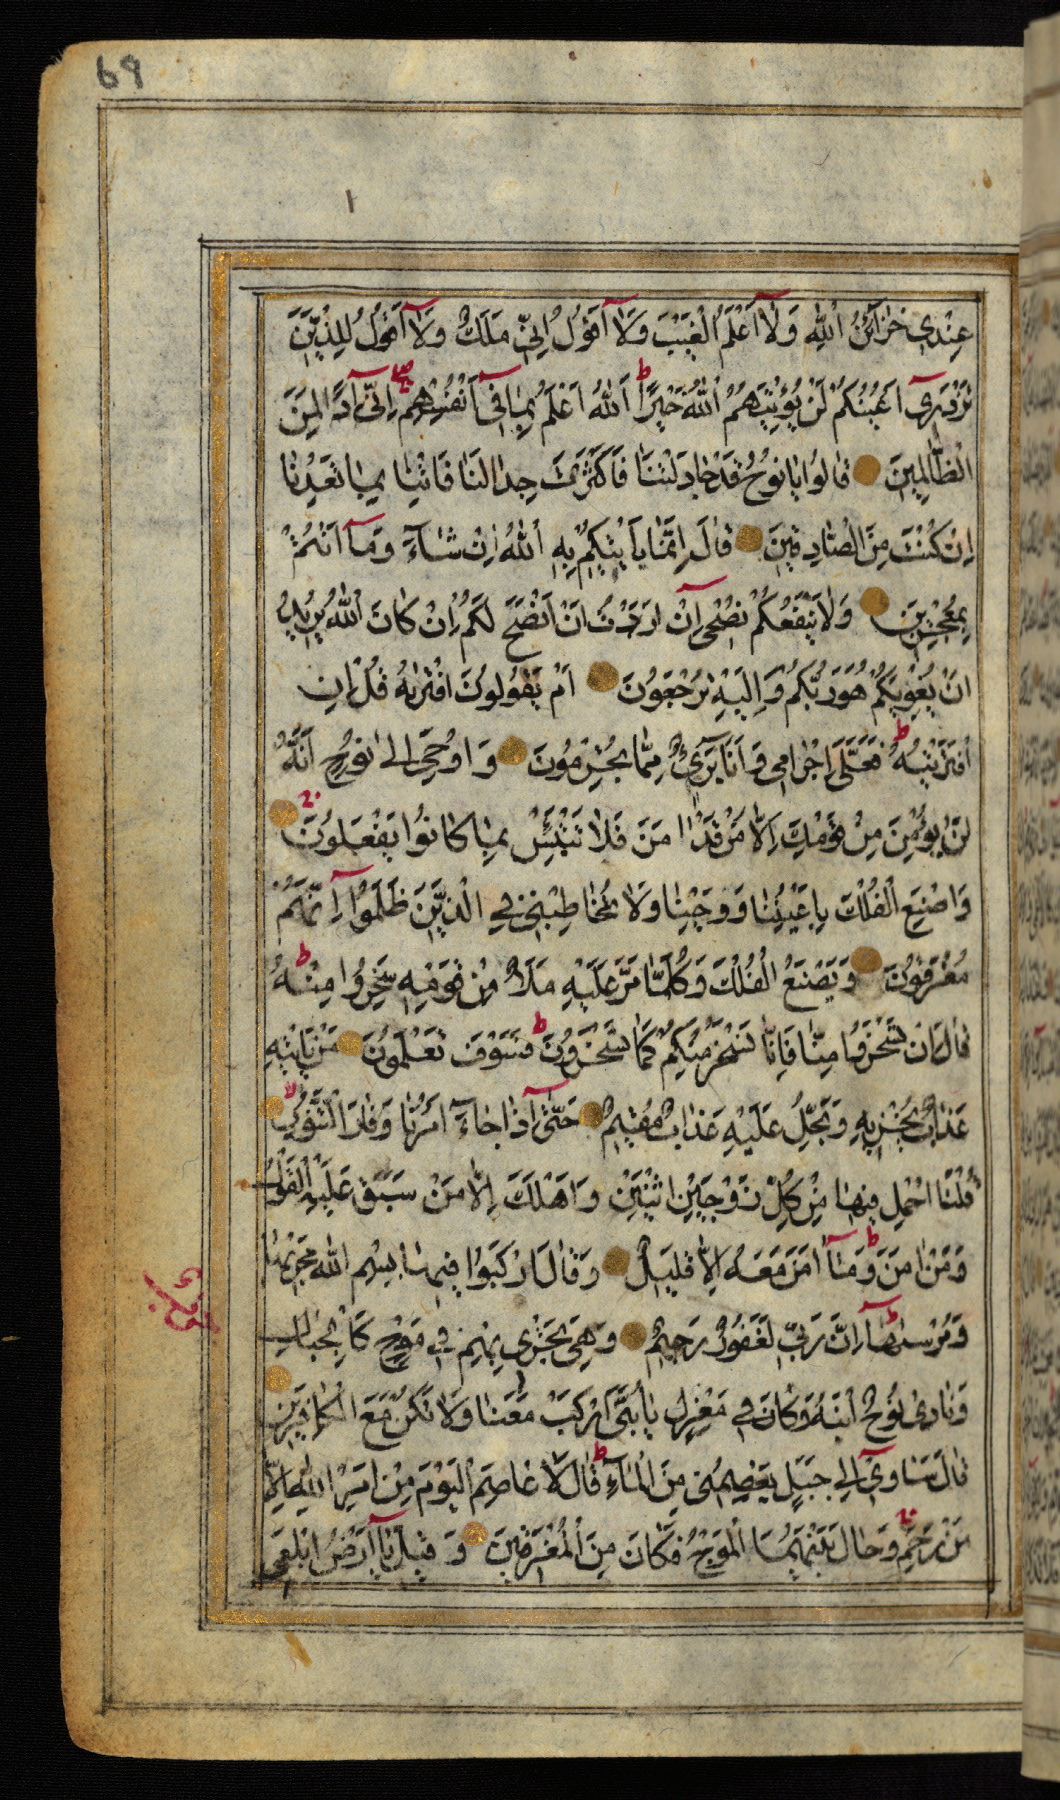 69
عِنْدِي خَزَآئِنُ اللّٰهِ وَلَآ اَعْلَمُ الْغَيْبَ وَلَآ اَقُولُ اِنِّي مَلَكٌ وَلَآ اَقُولُ لِلَّذِينَ
تَزْدَرِيٓ اَعْيُنُكُمْ لَنْ يُؤْتِيَهُمُ اللّٰهُ خَيْرًا ط اَللّٰهُ اَعْلَمُ بِمَا فِيٓ اَنْفُسِهِمْ اِنِّيٓ اِذًا لَمِنَ
الظَّالِمِينَ قَالُوا يَا نُوحُ قَدْ جَادَلْتَنَا فَاَكْثَرْتَ جِدَالَنَا فَاْتِنَا بِمَا تَعِدُنَا
اِنْ كُنْتَ مِنَ الصَّادِقِينَ قَالَ اِنَّمَا يَاْتِيكُمْ بِهِ اللّٰهُ اِنْ شَآءَ وَمَآ اَنْتُمْ
بِمُعْجِزِينَ وَلَا يَنْفَعُكُمْ نُصْحِيٓ اِنْ اَرَدْتُ اَنْ اَنْصَحَ لَكُمْ اِنْ كَانَ اللّٰهُ يُرِيدُ
اَنْ يُغْوِيَكُمْ هُوَ رَبُّكُمْ وَاِلَيْهِ تُرْجَعُونَ اَمْ يَقُولُونَ افْتَرٰيهُ قُلْ اِنِ
افْتَرَيْتُهُ ط فَعَلَيَّ اِجْرَامِي وَاَنَا بَرِيٓءٌ مِمَّا تُجْرِمُونَ وَاُوحِيَ اِلٰى نُوحٍ اَنَّهُ
لَنْ يُؤْمِنَ مِنْ قَوْمِكَ اِلَّا مَنْ قَدْ اٰمَنَ فَلَا تَبْتَئِسْ بِمَا كَانُوا يَفْعَلُونَ
وَاصْنَعِ الْفُلْكَ بِاَعْيُنِنَا وَوَحْيِنَا وَلَا تُخَاطِبْنِي فِي الَّذِينَ ظَلَمُوٓا اِنَّهُمْ
مُغْرَقُونَ وَيَصْنَعُ الْفُلْكَ وَكُلَّمَا مَرَّ عَلَيْهِ مَلَاٌ مِنْ قَوْمِهِ سَخِرُوا مِنْهُ ط
قَالَ اِنْ تَسْخَرُوا مِنَّا فَاِنَّا نَسْخَرُ مِنْكُمْ كَمَا تَسْخَرُونَ ط فَسَوْفَ تَعْلَمُونَ مَنْ يَاْتِيهِ
عَذَابٌ يُخْزِيهِ وَيَحِلُّ عَلَيْهِ عَذَابٌ مُقِيمٌ حَتّٰىٓ اِذَا جَآءَ اَمْرُنَا وَفَارَ التَّنُّورُ
قُلْنَا احْمِلْ فِيهَا مِنْ كُلٍّ زَوْجَيْنِ اثْنَيْنِ وَاَهْلَكَ اِلَّا مَنْ سَبَقَ عَلَيْهِ الْقَوْلُ
وَمَنْ اٰمَنَ ط وَمَآ اٰمَنَ مَعَهُ اِلَّا قَلِيلٌ وَقَالَ ارْكَبُوا فِيهَا بِسْمِ اللّٰهِ مَجْرٰيهَا
وَمُرْسٰيهَا ط اِنَّ رَبِّي لَغَفُورٌ رَحِيمٌ وَهِيَ تَجْرِي بِهِمْ فِي مَوْجٍ كَالْجِبَالِ
وَنَادٰى نُوحٌ ابْنَهُ وَكَانَ فِي مَعْزِلٍ يَا بُنَيَّ ارْكَبْ مَعَنَا وَلَا تَكُنْ مَعَ الْكَافِرِينَ
قَالَ سَاٰوِيٓ اِلٰى جَبَلٍ يَعْصِمُنِي مِنَ الْمَآءِ ط قَالَ لَا عَاصِمَ الْيَوْمَ مِنْ اَمْرِ اللّٰهِ اِلَّا
مَنْ رَحِمَ وَحَالَ بَيْنَهُمَا الْمَوْجُ فَكَانَ مِنَ الْمُغْرَقِينَ وَقِيلَ يَآ اَرْضُ ابْلَعِي